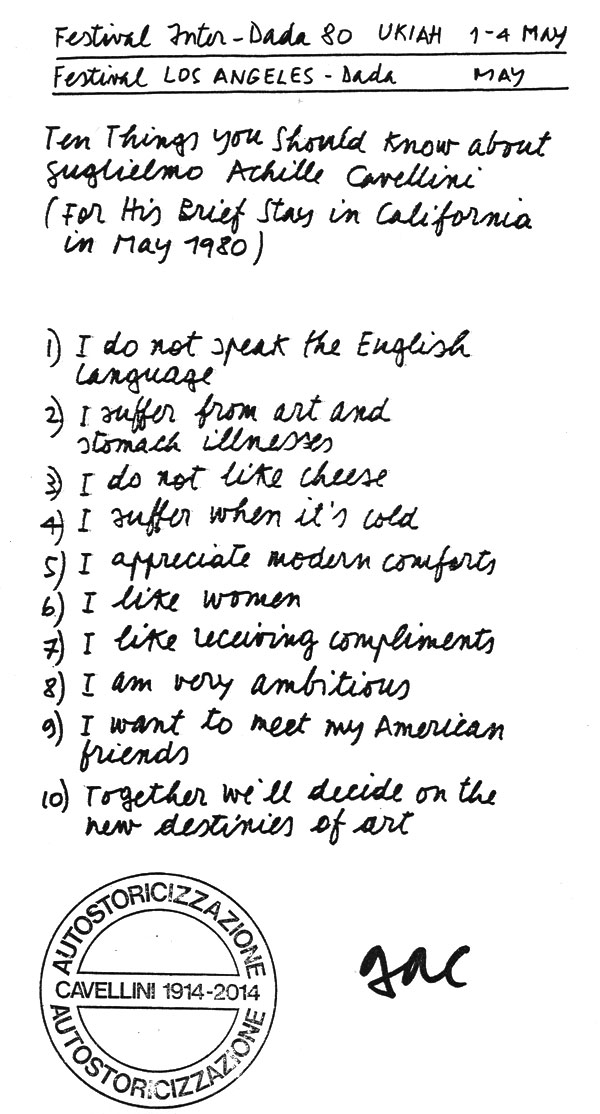 Festival Inter-Dada 80 UKIAH 1-4 MAY
Festival LOS ANGELES - Dada MAY
Ten Things you Should Know about
Guglielmo Achille Cavellini
(For His Brief Stay in California
in May 1980)
1) I do not speak the English
language
2) I suffer from art and
stomach illnesses
3) I do not like cheese
4) I suffer when it's cold
5) I appreciate modern comforts
6) I like women
7) I like receiving compliments
8) I am very ambitious
9) I want to meet my American
friends
10) Together we'll decide on the
new destinies of art
AUTOSTORICIZZAZIONE
CAVELLINI 1914-2014
AUTOSTORICIZZAZIONE
gac